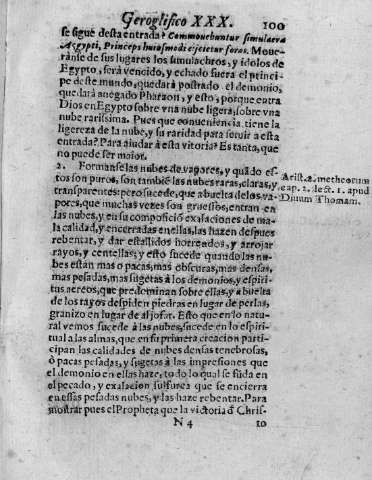 Geroglifico XXX. 100
se sigue desta entrada? Commovebuntur simulacra
Aegypti, Princeps huiusmodi ejetetur foros. Move-
ranse de sus lugares los simulachros, y idolos de
Egypto, serà vencido, y echado fuera el princi-
pe deste mundo, quedarà postrado el demonio,
quedarà anegado Pharaon, y esto, porque entra
Dios en Egypto sobre vna nube ligera, sobre vna
nube rarissima. Pues que conveniencia tiene la
ligereza de la nube, y su raridad para servir a esta
entrada? Para aiudar à esta vitoria? Es tanta, que
no puede ser maior.
2. Formanse las nubes de vapores, y quãdo es-
tos son puros, son tambiẽ las nubes raras, claras, y
transparentes: pero sucede, que abuelta de los va-
pores, que muchas veces son gruessos, entran en
las nubes, y en su composiciõ exalaciones de ma-
la calidad, y encerradas en ellas, las hazen despues
rebentar, y dar estallidos horrendos, y arrojar
rayos, y centellas; y esto sucede quando las nu-
bes estàn mas opacas; mas obscuras, mas densas,
mas pesadas, mas sugetas à los demonios, y espiri-
tus aereos, que predominan sobre ellas, y a buelta
de los rayos despiden piedras en lugar de perlas,
granizo en lugar de aljofar. Esto que en lo natu-
ral vemos sucede à las nubes, sucede en lo espiri-
tual a las almas, que en su primera creacion parti-
cipan las calidades de nubes densas tenebrosas,
ò pacas pesadas, y sugetas à las impresiones que
el demonio en ellas haze, todo lo qual se fũda en
el pecado, y exalacion sulfurea que se encierra
en essas pesadas nubes, y las haze rebentar. Para
mostrar pues el Propheta que la victoria d̃ Chris-
N 4 to
Arist. 2. metheorum
cap. 2. lect. 1. apud
Divum Thomam.